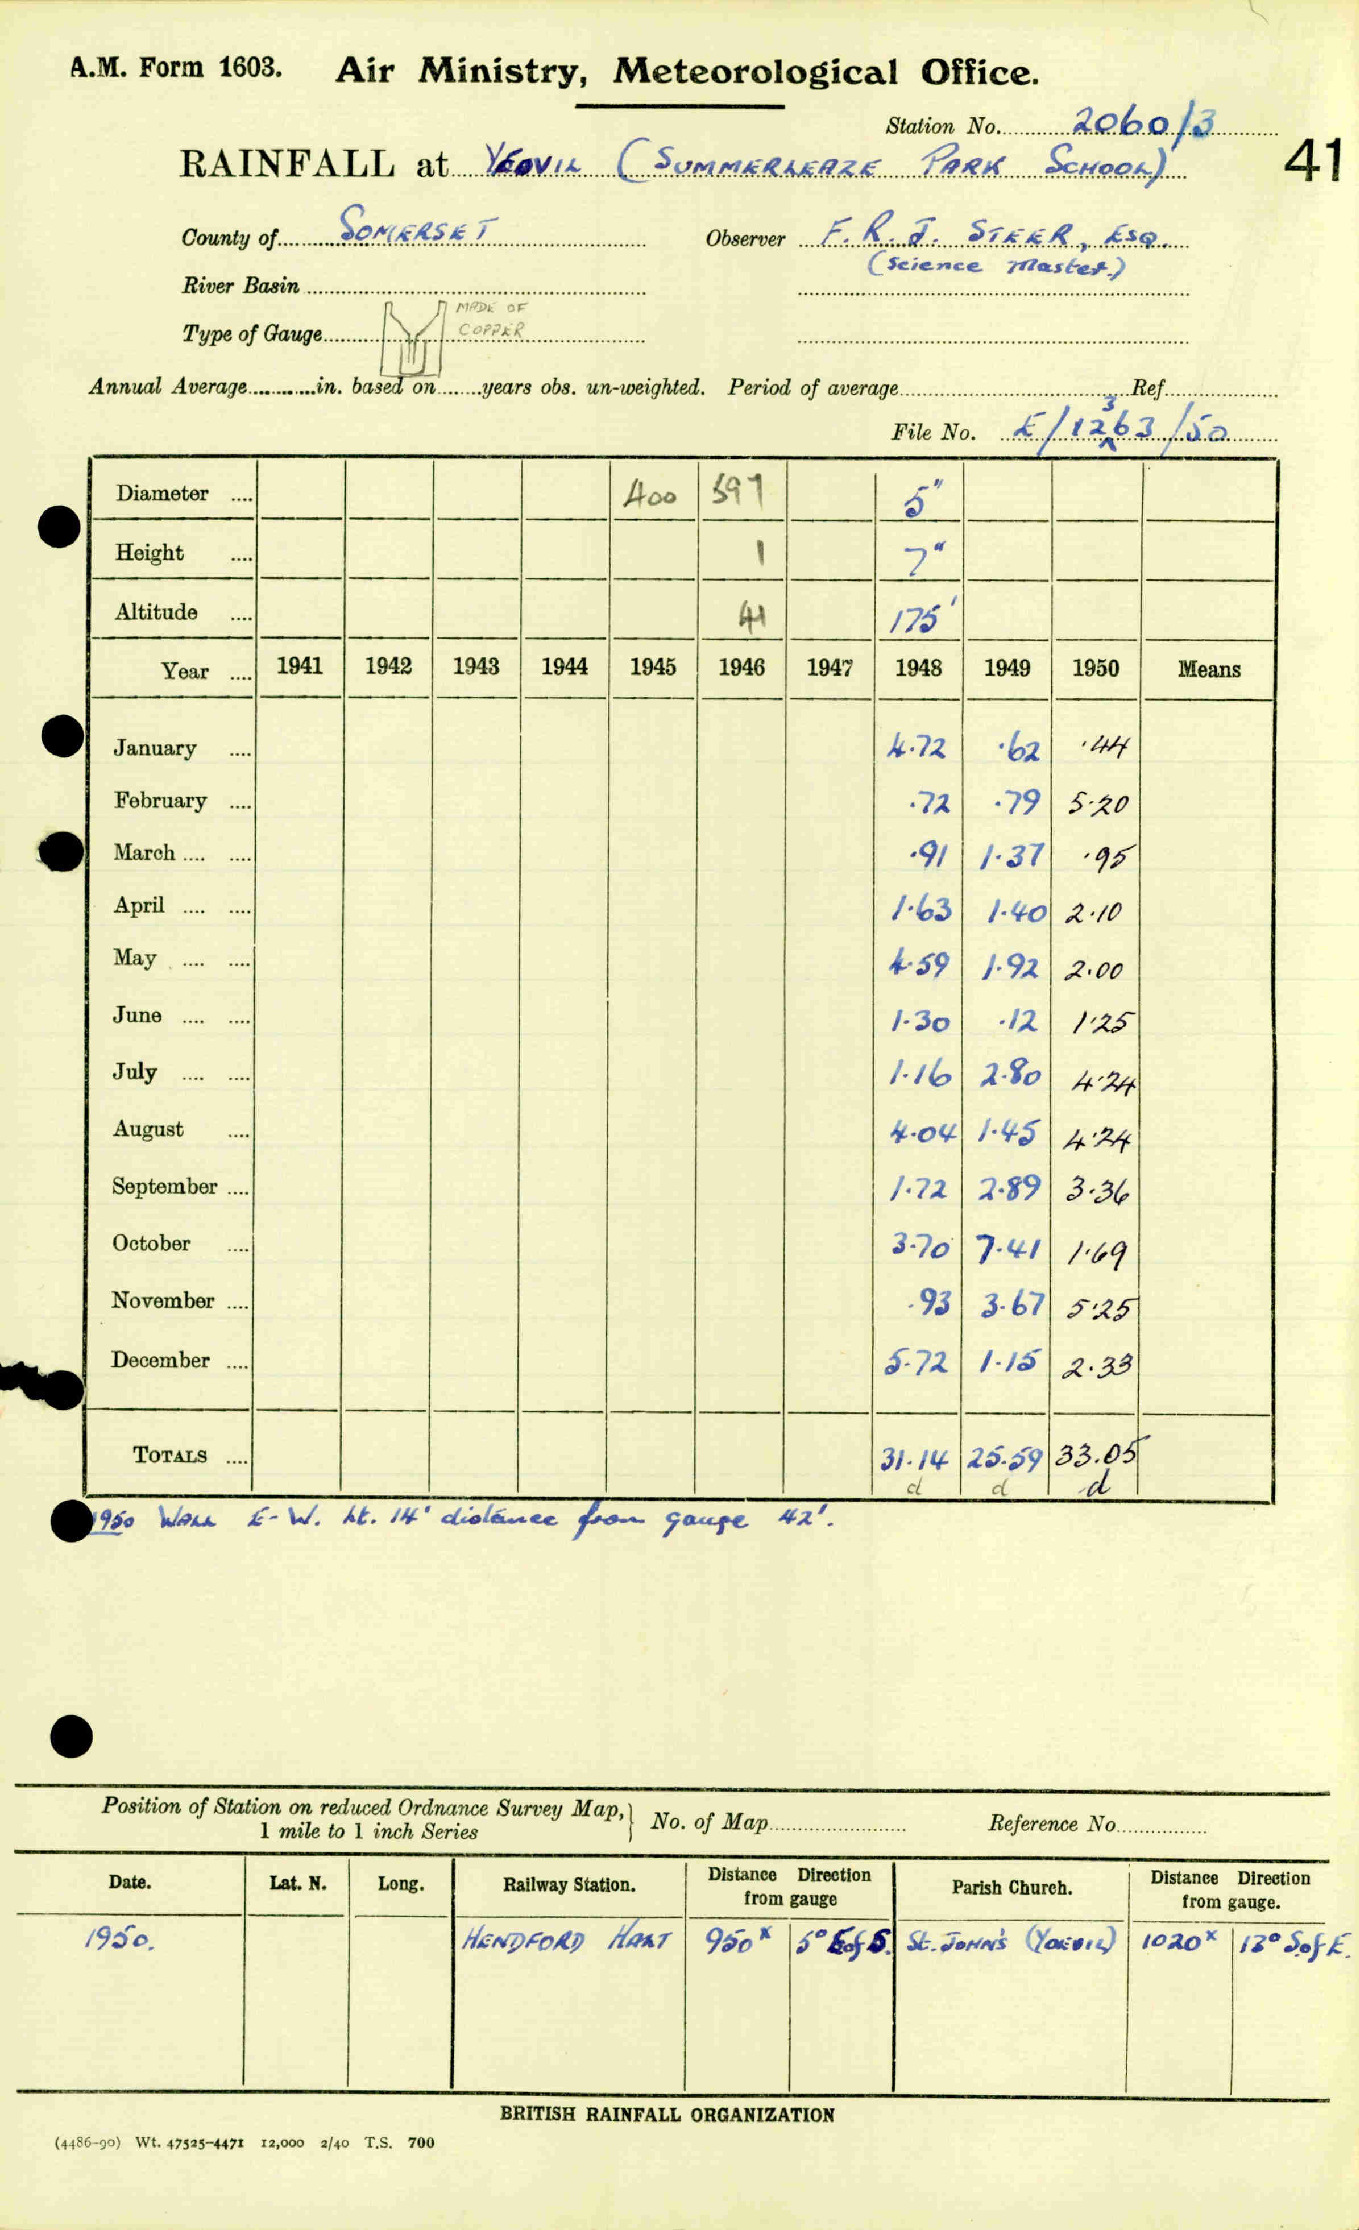 A.M. Form 1603. Air Ministry, Meteorological Office.
Station No. 2060/3
RAINFALL at YEOVIL (SUMMERLEAZE PARK SCHOOL)
41
County of SOMERSET Observer F. R. J. STEER, ESQ.
(Science Master.)
River Basin
MADE OF
Type of Gauge COPPER
Annual Average............in. based on........years obs. un-weighted. Period of average Ref.
3
File No. E/1263/50
Diameter .... 400 597 5"
Height .... 1 7"
Altitude .... 41 175'
Year .... 1941 1942 1943 1944 1945 1946 1947 1948 1949 1950 Means
January .... 4.72 .62 .44
February .... .72 .79 5.20
March .... .... .91 1.37 .95
April .... .... 1.63 1.40 2.10
May .... .... 4.59 1.92 2.00
June .... .... 1.30 .12 1.25
July .... .... 1.16 2.80 4.24
August .... 4.04 1.45 4.24
September .... 1.72 2.89 3.36
October .... 3.70 7.41 1.69
November .... .93 3.67 5.25
December .... 5.72 1.15 2.33
TOTALS .... 31.14 25.59 33.05
d d d
1950 WALL E-W. ht. 14' distance from gauge 42'.
Position of Station on reduced Ordnance Survey Map,
1 mile to 1 inch Series
No. of Map Reference No.
Date. Lat. N. Long. Railway Station. Distance Direction from gauge Parish Church. Distance Direction from gauge.
1950. HENDFORD HALT 950x 5° E of S. St. JOHN'S (YOEVIL) 1020x 13° S of E.
BRITISH RAINFALL ORGANIZATION
(4486-90) Wt. 47525-4471 12,000 2/40 T.S. 700